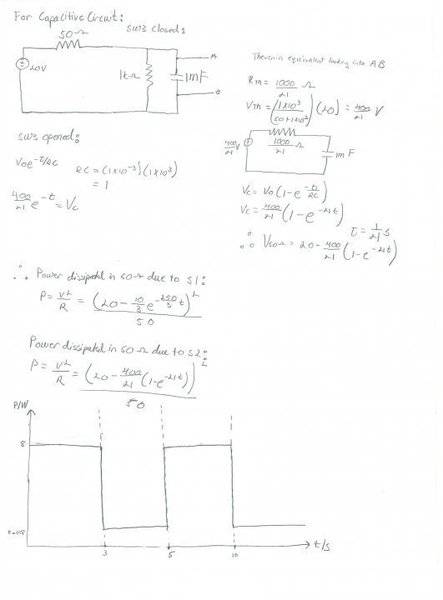 For Capacitive Circuit:
sw3 closed:
50Ω
20V
1kΩ
1mF
A
B
Thevenin equivalent looking into AB
= 1000/21 Ω
(20) = 400/21 V
400/21
1000/21 Ω
1mF
sw3 opened:
V0e^-t/RC
RC = (1x10^-3)(1x10^3)
= 1
400/21 e^-t = Vc
Vc = V0(1-e^-t/RC)
Vc = 400/21 (1-e^-21t)
τ = 1/21 s
∴ V50Ω = 20 - 400/21 (1-e^-21t)
∴ Power dissipated in 50Ω due to S1:
P = V²/R =
50
Power dissipated in 50Ω due to S2:
P = V²/R = (20 - 400/21 (1-e^-21t))²
50
P/W
8
3
5
10
t/s